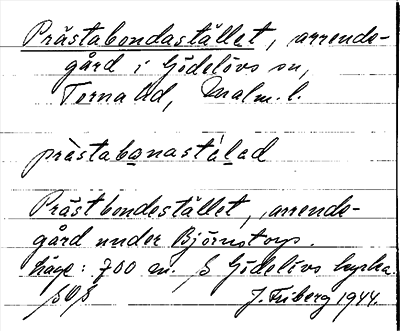 Prästabondastället, arrende-
gård i Gödelövs sn,
Torna hd, Malm. l.
prästabonastälad
Präst bondestället, arrende-
gård under Björnstorps.
läge: 700 m. S Gödelövs kyrka.
J. Friberg 1944.